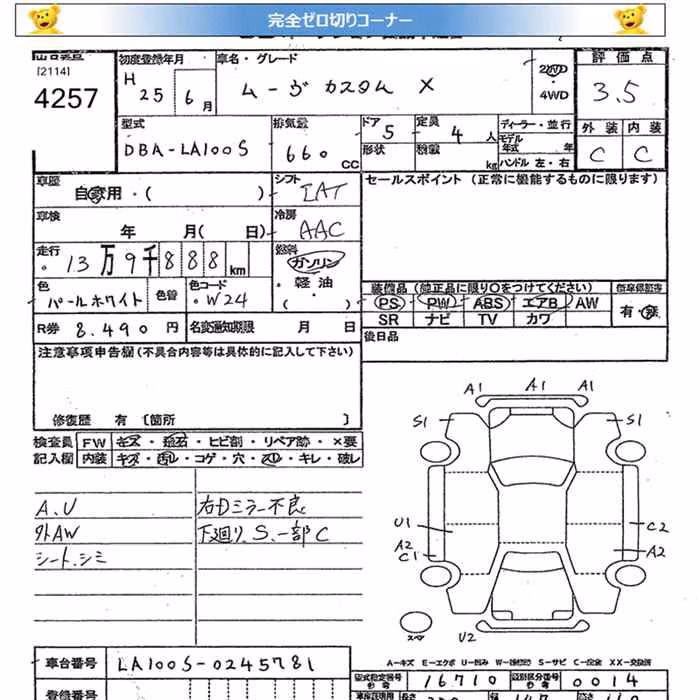 完全ゼロ切りコーナー
[2114]
4257
初度登録年月
H 25 6月
車名・グレード
ムーヴ カスタム X
2WD
・
4WD
評価点
3.5
外装 内装
C C
型式
DBA-LA100S
排気量
660 CC
ドア 5
形状
定員 4人
積載 kg
ディーラー・並行
モデル年式 年
ハンドル 左・右
車歴
自家用・( )
シフト
IAT
セールスポイント (正常に機能するものに限ります)
車検
年 月( 日)
冷房
AAC
走行
13万9千888 km
燃料
ガソリン
・軽油・
( )
色
パールホワイト
色替
色コード
W24
装備品 (純正品に限り○をつけてください)
PS PW ABS エアB AW
SR ナビ TV カワ
有・無
R券 8.490円
名変通知期限 月 日
後日品
注意事項申告欄 (不具合内容等は具体的に記入して下さい)
修復歴 有 〔箇所 〕
検査員
記入欄
FW キズ・飛石・ヒビ割・リペア跡・×要
内装 キズ・汚れ・コゲ・穴・スレ・キレ・破レ
A.U
外AW
シート.シミ
右Dミラー不良
下廻り S.一部C
A1 A1 A1
S1 S1
U1 C2
A2 A2
C1
スペア
U2
A-キズ E-エクボ U-凹み S-サビ XX-交換済
車台番号 LA100S-0245781
型式指定番号 16710
類別区分番号 0014
登録番号